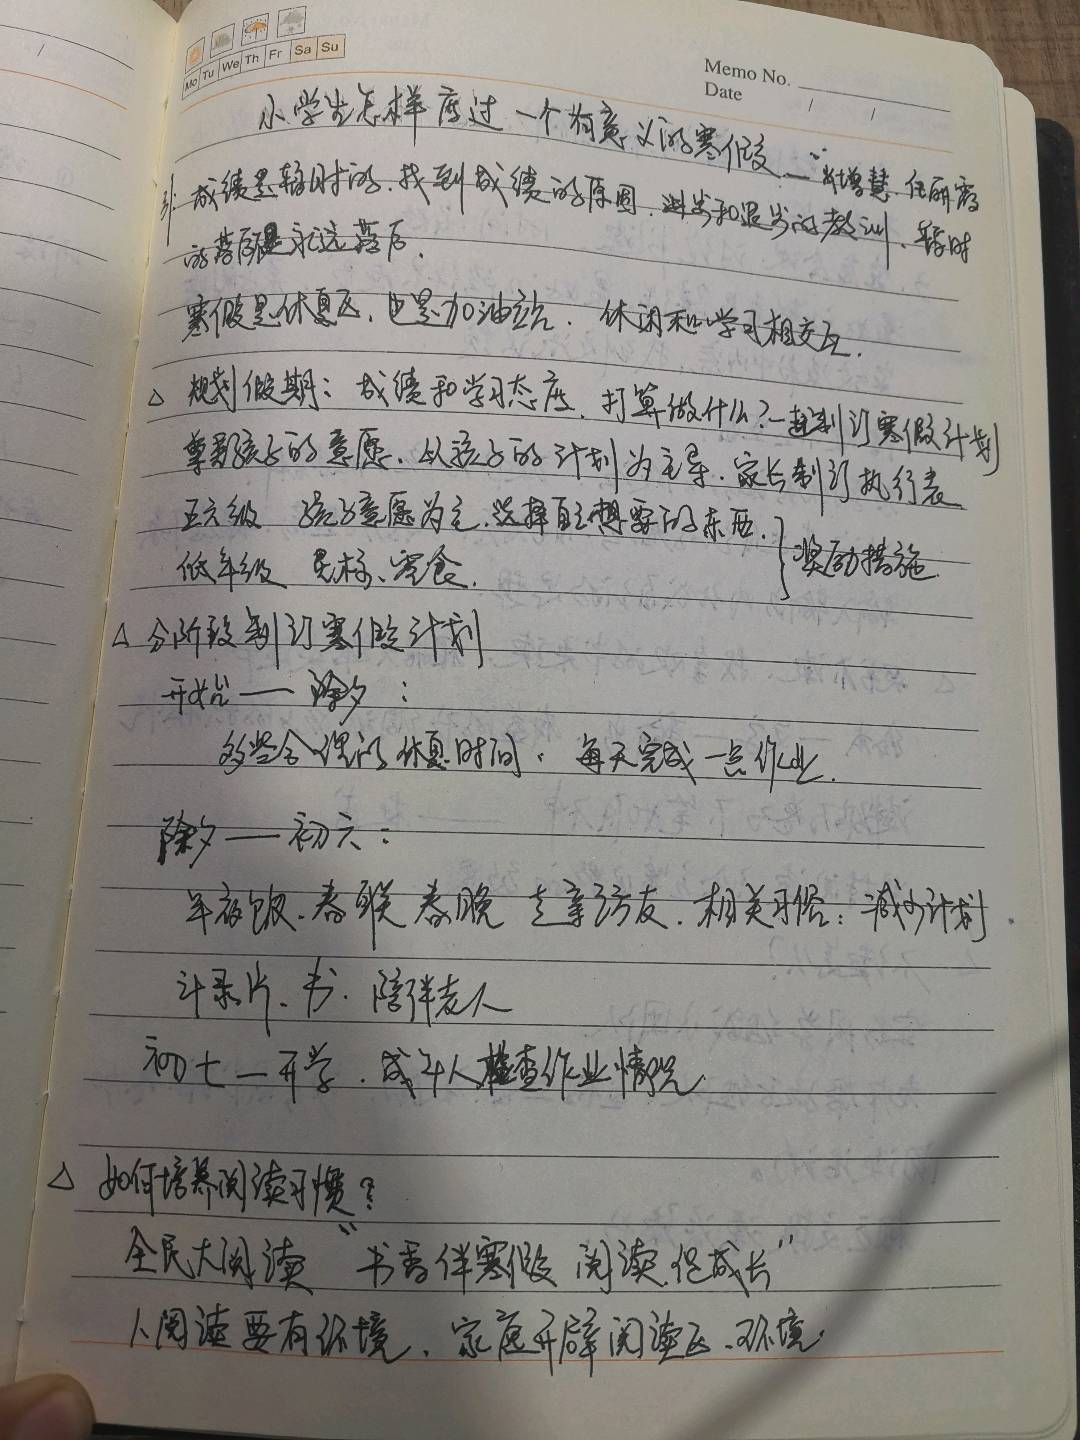 Mo Tu We Th Fr Sa Su
Memo No.
Date / /
小学生怎样度过一个有意义的寒假
引: 成绩是暂时的、找到成绩的原因、进步和退步的教训、暂时
的落后是永远落后、
寒假是休息区、也是加油站、休闲和学习相交互、
△ 规划假期: 成绩和学习态度、打算做什么?一起制订寒假计划
尊重孩子的意愿、以孩子的计划为主导、家长制订执行表
五六级 孩子意愿为主、选择自己想要的东西、
低年级 零食、 } 奖励措施
△ 分阶段制订寒假计划
开始——除夕:
合理的休息时间、每天完成一点作业、
除夕——初六:
年夜饭、春联 春晚 走亲访友、相关习俗: 减少计划
书、陪伴老人
初七—开学、成年人检查作业情况、
△ 如何培养阅读习惯?
全民大阅读 “书香伴寒假 阅读促成长”
1、阅读要有环境、家庭开辟阅读区、环境